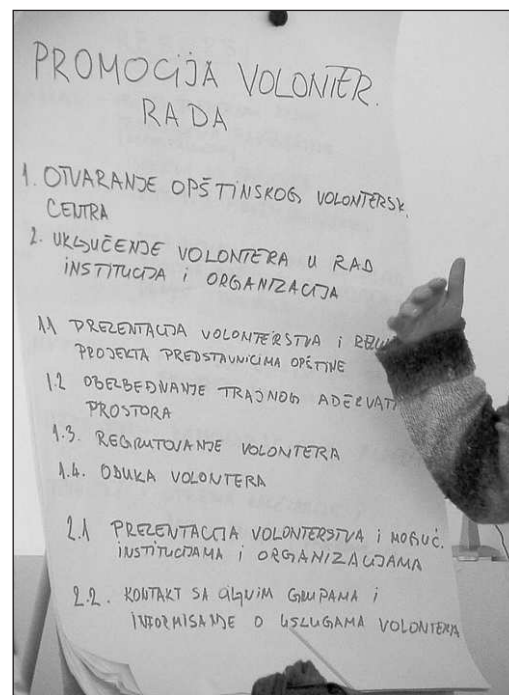 PROMOCIJA VOLONTER.
RADA
1. OTVARANJE OPŠTINSKOG VOLONTERSK.
CENTRA
2. UKLJUČENJE VOLONTERA U RAD
INSTITUCIJA i ORGANIZACIJA
1.1 PREZENTACIJA VOLONTERSTVA i
PROJEKTA PREDSTAVNICIMA OPŠTINE
1.2 OBEZBEĐIVANJE TRAJNOG
PROSTORA
1.3. REGRUTOVANJE VOLONTERA
1.4. OBUKA VOLONTERA
2.1 PREZENTACIJA VOLONTERSTVA i MOGUĆ.
INSTITUCIJAMA i ORGANIZACIJAMA
2.2. KONTAKT SA CILJNIM GRUPAMA i
INFORMISANJE O USLUGAMA VOLONTERA